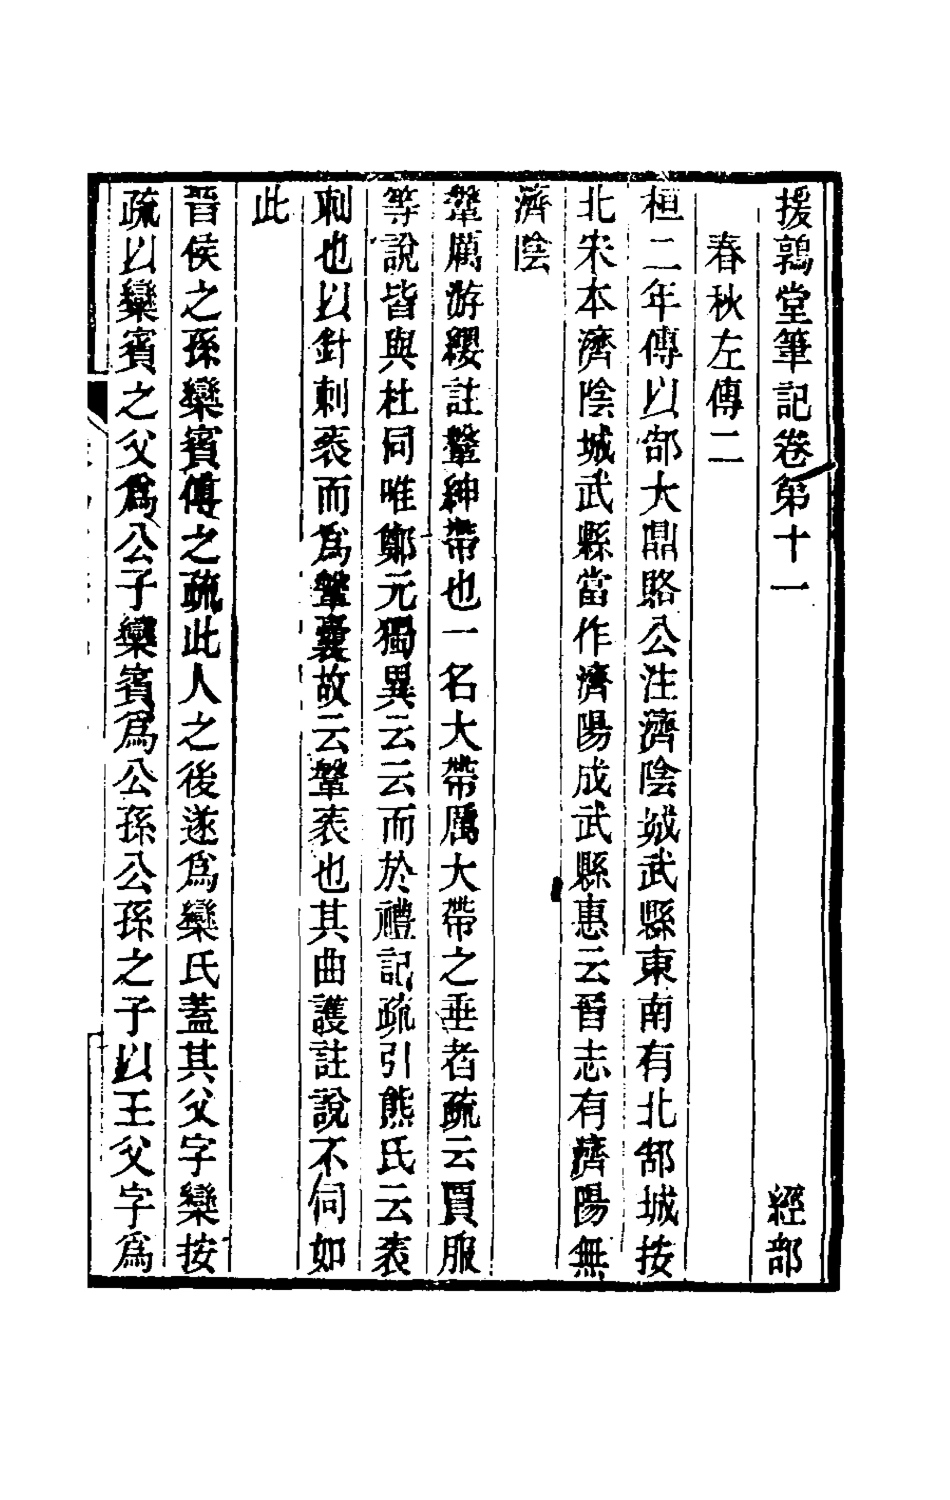 援鶉堂筆記卷第十一 經部
春秋左傳二
桓二年傳以郜大鼎賂公注濟陰城武縣東南有北郜城按
北宋本濟陰城武縣當作濟陽成武縣惠云晉志有濟陽無
濟陰
鞶厲游纓註鞶紳帶也一名大帶厲大帶之垂者疏云賈服
等說皆與杜同唯鄭元獨異云云而於禮記疏引熊氏云裘
刺也以針刺裘而爲鞶囊故云鞶裘也其曲護註說不伺如
此
晉侯之孫欒賓傅之疏此人之後遂爲欒氏蓋其父字欒按
疏以欒賓之父爲公子欒賓爲公孫公孫之子以王父字爲